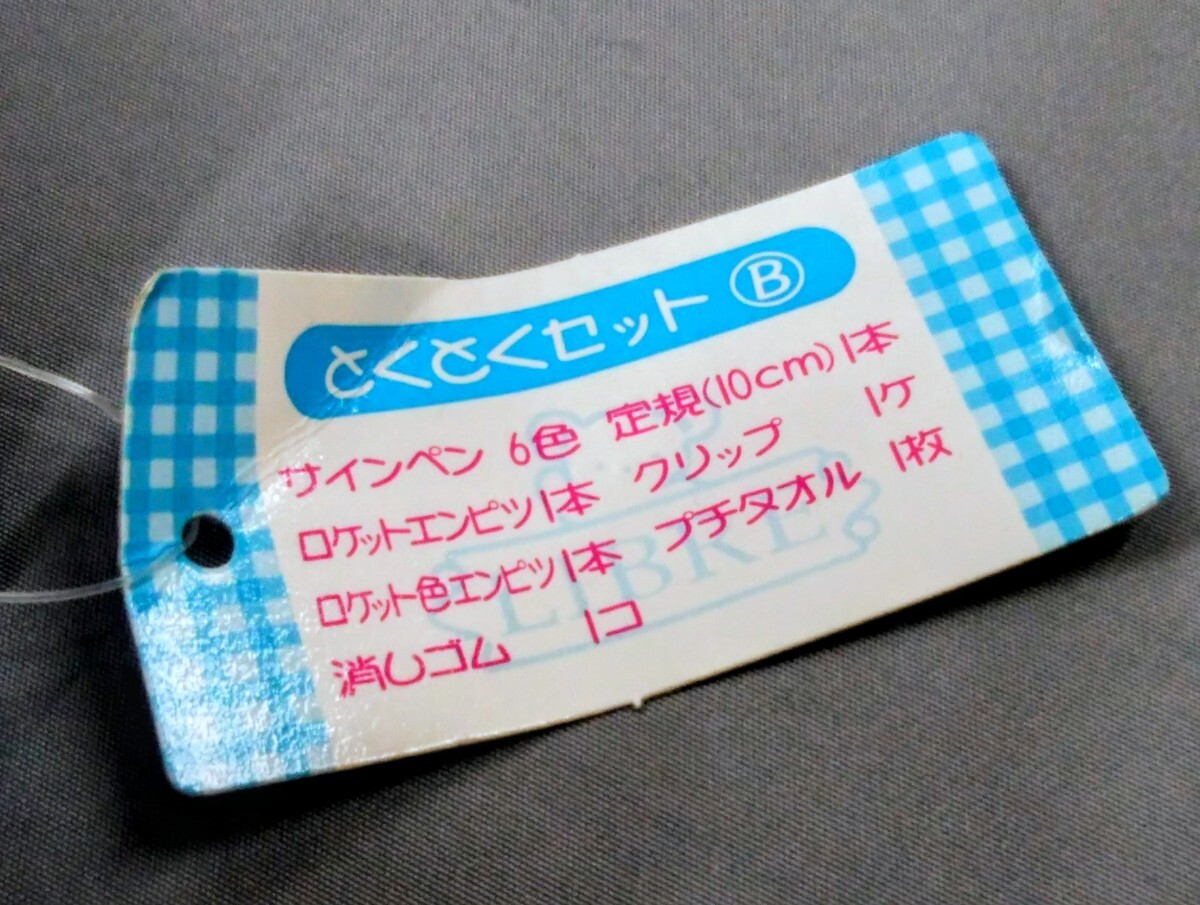 とくとくセット Ⓑ
サインペン 6色 定規(10cm) 1本
ロケットエンピツ 1本 クリップ 1ケ
ロケット色エンピツ 1本 プチタオル 1枚
消しゴム 1コ
LIBRE